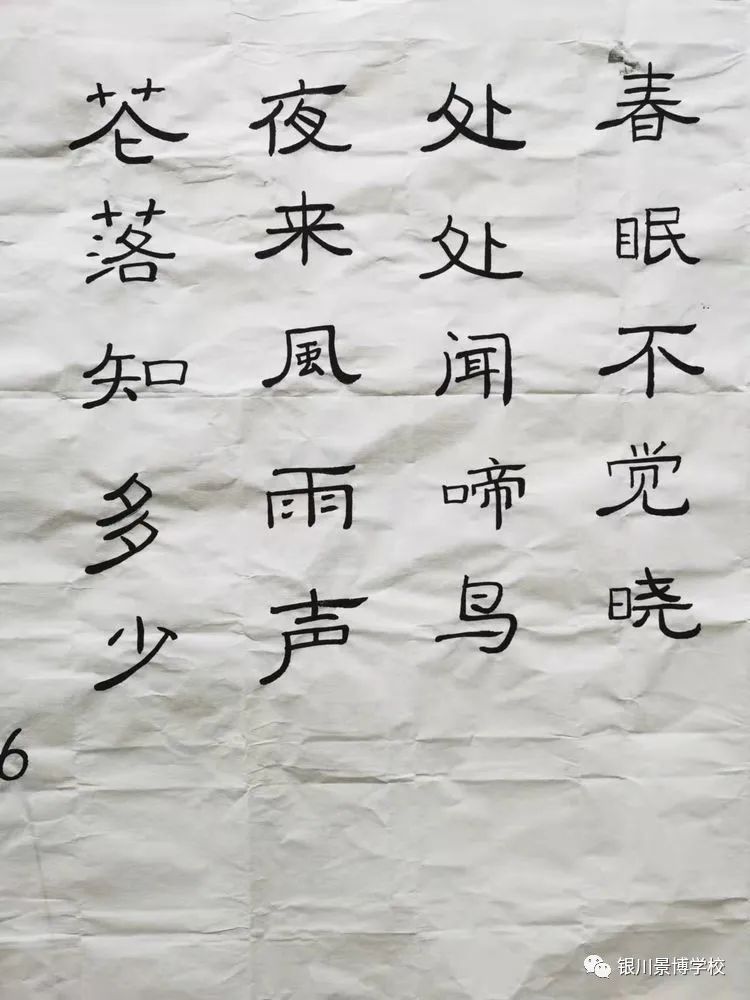 春眠不觉晓
处处闻啼鸟
夜来風雨声
花落知多少
6
银川景博学校